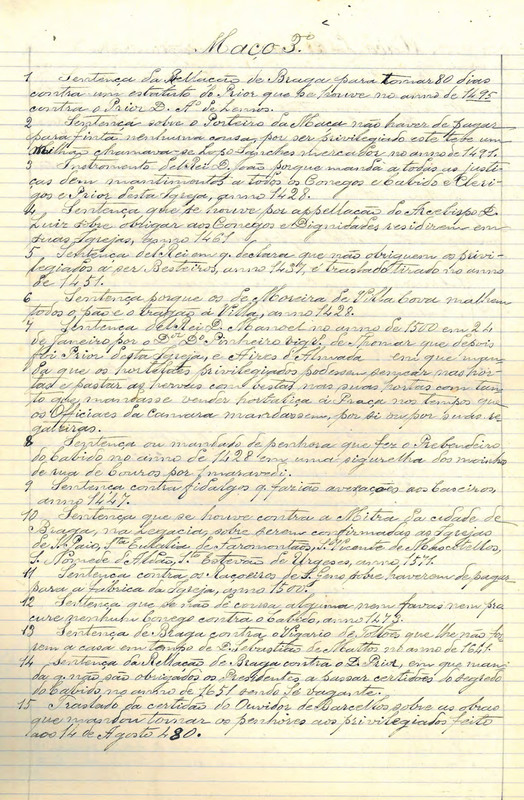 Maço 3.º
1 Sentença da Rellação de Braga para tomar 80 dias
contra um estatuto de Prior que se houve no anno de 1495
contra o Prior D. Aº de Lemos.
2 Sentença sobre o Porteiro da Maça não haver de pagar
para finta nenhuma cousa, por ser privilegiado este tebe um
chamava-se Lopo Sanches mercador, no anno de 1497.
3 Instrumento del Rei D. João porque manda a todas as justi-
ças dem mantimentos a todos os Conegos e Cabido e Cleri-
gos e Prior desta Igreja, anno 1428.
4 Sentença que se houve por appellação do Arcebispo D.
Luiz sobre obrigar aos Conegos e Dignidades residirem em
suas Igrejas, anno 1461.
5 Sentença del Rei em q. declara que não obriguem os privi-
legiados a ser Besteiros, anno 1437, e traslado tirado no anno
de 1451.
6 Sentença porque os de Moreira de Villa Cova malhem
todos o pão e o tragão á Villa, anno 1428.
7 Sentença del Rei D. Manoel no anno de 1500 em 24
de Janeiro por o Dor Dº Pinheiro vigrº de Thomar que depois
foi Prior desta Igreja, e Aires d'Almada em que manda
da que os hortelões privilegiados podessem semear nas hor-
tas e pastar as hervas com bestas nas suas hortas com tan-
to que mandasse vender hortaliça á Praça nos tempos que
os Officiaes da Camara mandassem, por si ou por suas re-
gateiras.
8 Sentença ou mandado de penhora que fez o Prebendeiro
do Cabido no anno de 1428 em uma dos moinho
de rua de Couros por maravedi.
9 Sentença contra fidalgos q. farião avexações aos caseiros,
anno 1447.
10 Sentença que se houve contra a Mitra da cidade de
Braga, na Legacia, sobre serem confirmadas as Igrejas
de S. Paio, Sta Eulalia de Fermontões, S. Vicente de Mascotellos,
S. Mamede de Aldão, Sto Estevão de Urgeses, anno 1571.
11 Sentença contra os Raçoeiros de S. Gens sobre haverem de pagar
para a fabrica da Igreja, anno 1500.
12 Sentença que se não dê cousa alguma nem favas nem pro-
cure nenhum Conego contra o Cabido, anno 1473.
13 Sentença de Braga contra o Vigario de que lhe não fi-
sem a casa em tempo de D. Sebastião de Mattos no anno de 1641.
14 Sentença da Rellação de Braga contra o D. Prior, em que man-
da q. não são obrigados os Presidentes a passar certidões do segredo
do Cabido, no anno de 1651 sendo Sé vagante.
15 Traslado da certidão do Ouvidor de Barcellos sobre as obras
que mandou tomar os penhores aos privilegiados feito
aos 14 de Agosto 480.